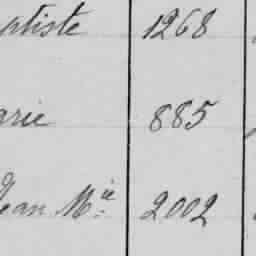 ptiste 1268
arie 885
Jean M.ie 2002